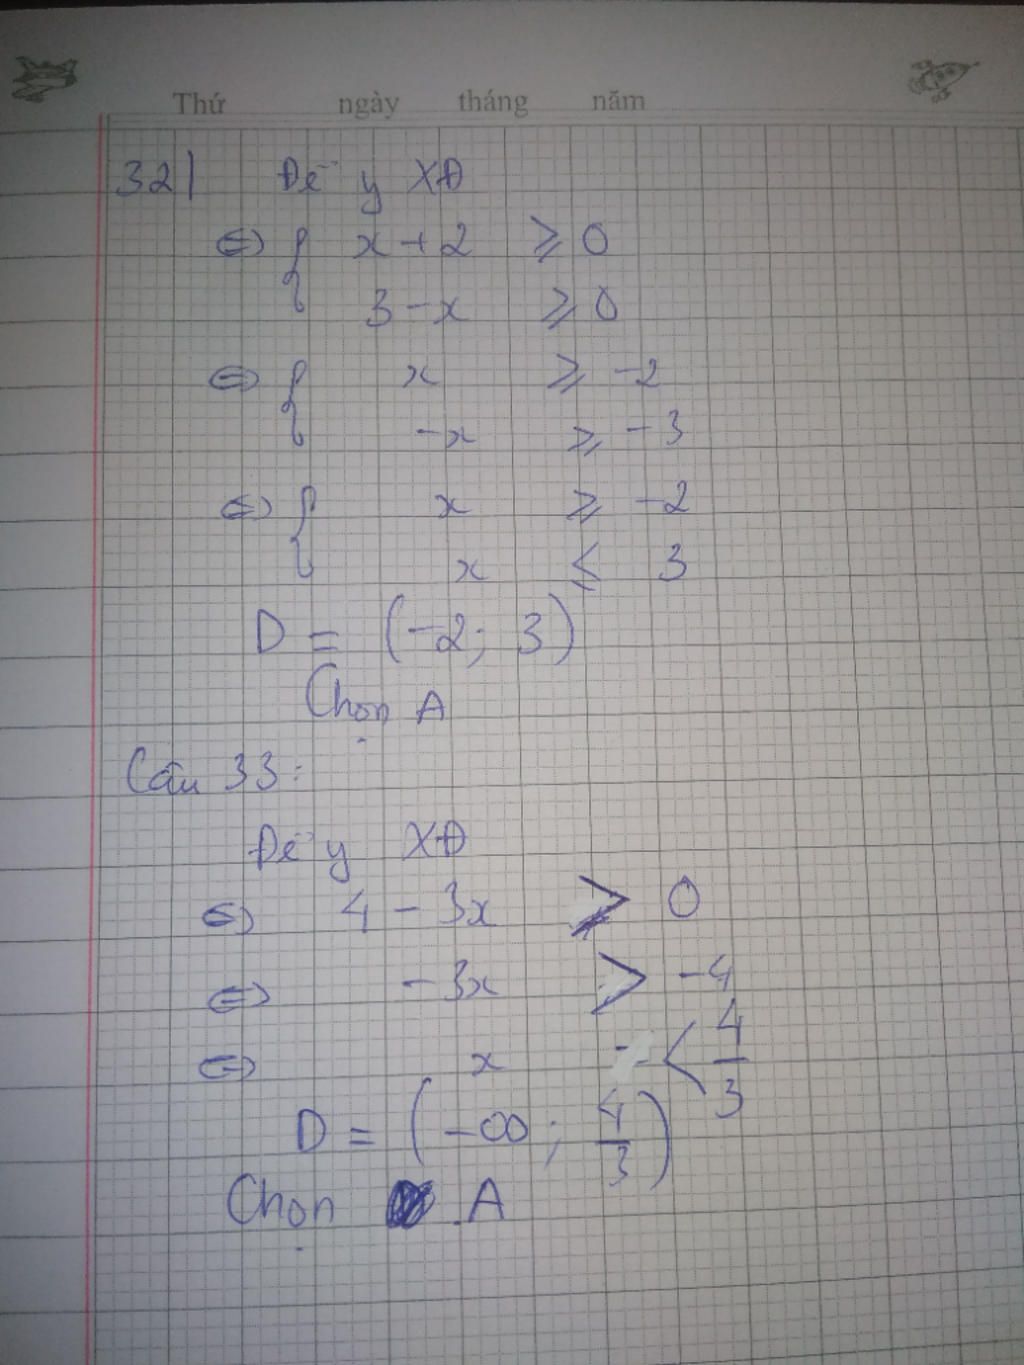 Thứ ngày tháng năm
32| Để y XĐ
⇔ { x + 2 ⩾ 0
3 - x ⩾ 0
⇔ { x ⩾ -2
-x ⩾ -3
⇔ { x ⩾ -2
x ⩽ 3
D = (-2; 3)
Chọn A
Câu 33:
Để y XĐ
⇔ 4 - 3x > 0
⇔ -3x > -4
⇔ x < 4/3
D = (-∞; 4/3)
Chọn A